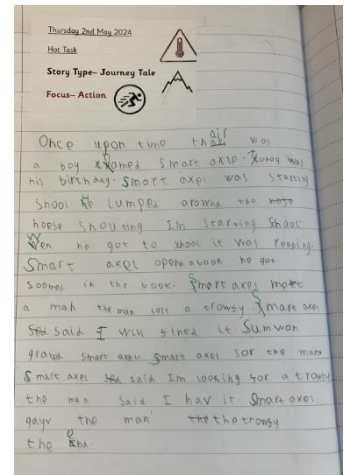 Thursday 2nd May 2024
Hot Task
Story Type– Journey Tale
Focus– Action
Once upon time thair was
a boy named Smart axle. Today was
his birthday. Smart axel was starting
Shool. He Lumped around the
hoese Shouting Im starting Shool
Wen he got to shool it was
Smart axel opend a book he got
in the book. Smart axel
a man the man loss a trowty. Smart axel
said I will fined it. Sumwon
grabd Smart axel. Smart axel sor the man
Smart axel said Im looking for a trowty
the man said I hav it. Smart axel
gayv the man the trowty
the End.